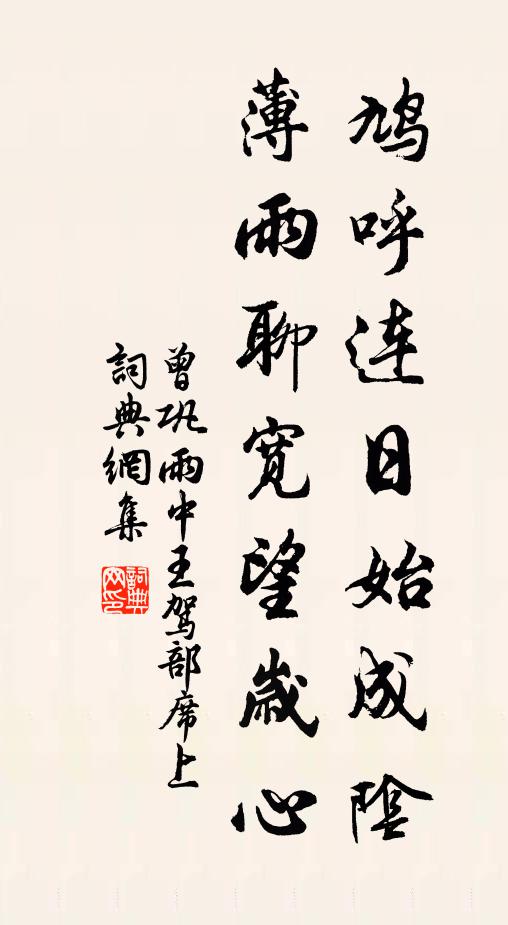 鳩呼連日始成陰
薄雨聊寬望歲心
曾鞏雨中王駕部席上
詞典網集
詞典
網印